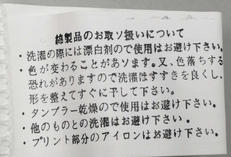 綿製品のお取り扱いについて
・洗濯の際には漂白剤のご使用はお避け下さい。
・色が変わることがあります。又、色落ちする
恐れがありますので洗濯はすすぎを良くし、
形を整えてすぐに干して下さい。
・タンブラー乾燥のご使用はお避け下さい。
・他のものとの洗濯はお避け下さい。
・プリント部分のアイロンはお避け下さい。